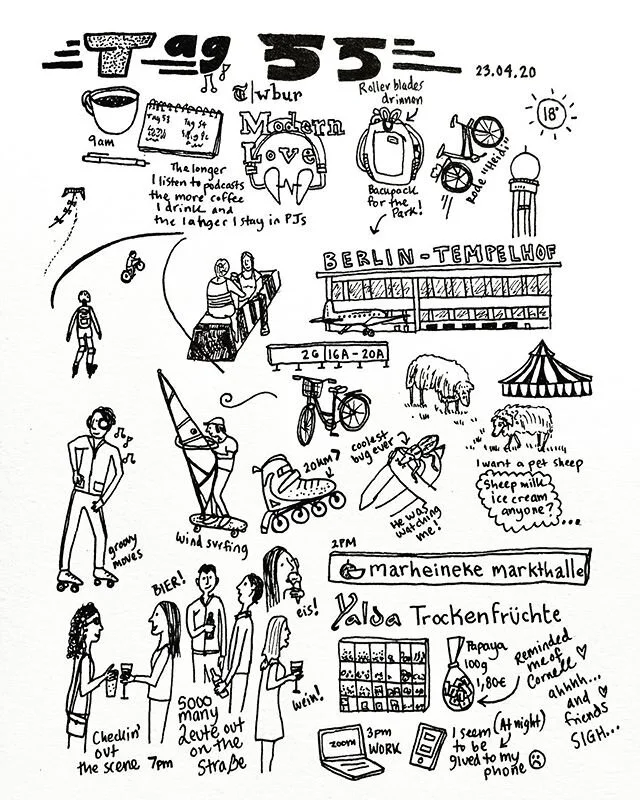 Tag 55
23.04.20
9am
Tag 53
Tag 54
T/wbur
Modern
Love
The longer
I listen to podcasts
the more coffee
I drink and
the langer I stay in PJs
Roller blades
drinnen
Backpack
for the
Park!
Rode "Heidi"
18°
BERLIN-TEMPELHOF
2G 16A-20A
groovy
moves
wind surfing
20km?
coolest
bug ever
He was
watching
me!
I want a pet sheep
Sheep milk
ice cream
anyone?
...
2PM
marheineke markthalle
Yalda Trockenfrüchte
Papaya
100g
1,80€
Reminded
me of
Cornell ♡
ahhhh...
and ♡
friends
SIGH...
BIER!
eis!
wein!
Checkin'
out
the scene 7pm
5000
many
Leute out
on the
Straße
zoom
3pm
WORK
I seem (At night)
to be
glued to my
phone ☹